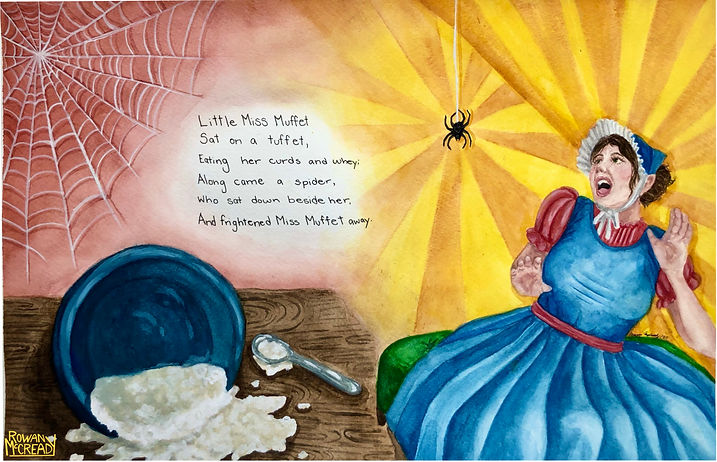 Little Miss Muffet
Sat on a tuffet,
Eating her curds and whey;
Along came a spider,
Who sat down beside her,
And frightened Miss Muffet away.
ROWAN
MCCREADY